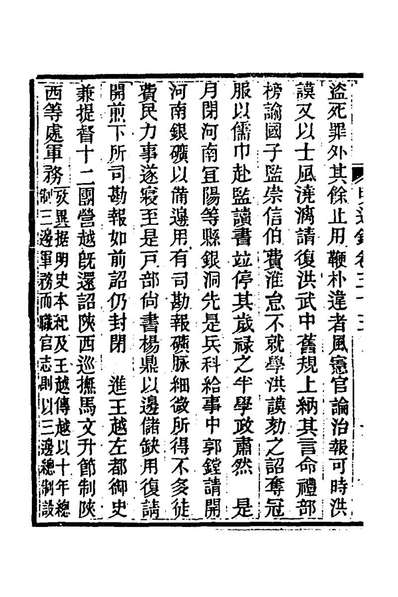 盜死罪外其餘止用鞭朴違者風憲官論治報可時洪
謨又以士風澆漓請復洪武中舊規上納其言命禮部
榜諭國子監崇信伯費淮怠不就學洪謨劾之詔奪冠
服以儒巾赴監讀書並停其歲祿之半學政肅然　是
月閉河南宜陽等縣銀洞先是兵科給事中郭鏜請開
河南銀礦以備邊用有司勘報礦脉細微所得不多徒
費民力事遂寢至是戸部尙書楊鼎以邊儲缺用復請
開煎下所司勘報如前詔仍封閉　進王越左都御史
兼提督十二團營越旣還詔陝西巡撫馬文升節制陝
西等處軍務攷異據明史本紀及王越傳越以十年總
制三邊軍務而職官志則以三邊總制設